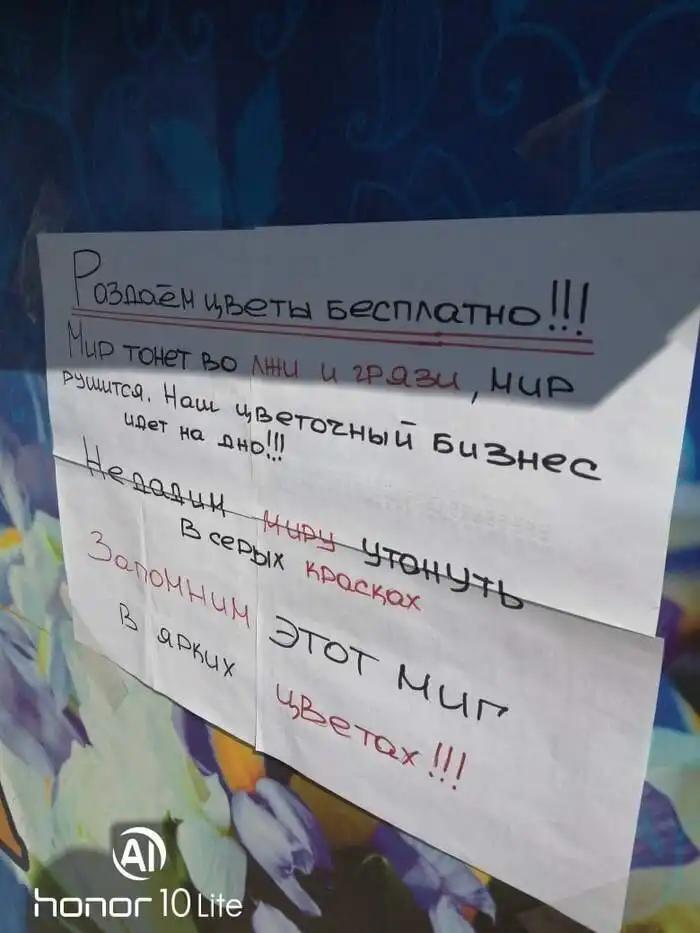 Раздаём цветы бесплатно!!!
Мир тонет во лжи и грязи, мир
рушится. Наш цветочный бизнес
идет на дно!!!
Недадим миру утонуть
в серых красках
Запомним этот миг
в ярких цветах!!!
AI
honor 10 Lite